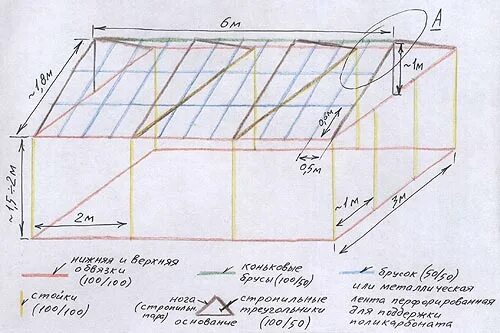 6м
А
~1,8м
~1м
0,6м
0,5м
~1,5÷2м
2м
~1м
3м
нижняя и верхняя
обвязки
(100/100)
коньковые
брусы (100/50)
брусок (50/50)
или металлическая
лента перфорированная
для поддержки
поликарбоната
стойки
(100/100)
нога
(стропильн.
пара)
основание
стропильные
треугольники
(100/50)